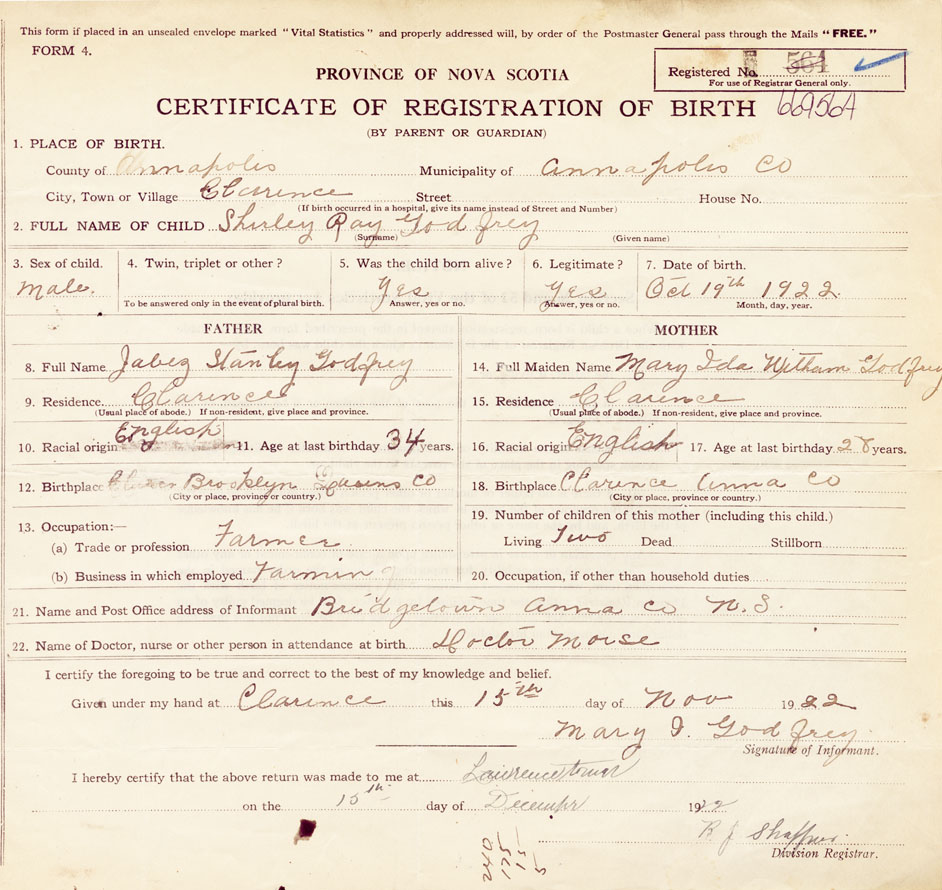 This form if placed in an unsealed envelope marked "Vital Statistics" and properly addressed will, by order of the Postmaster General pass through the Mails "FREE."
FORM 4.
Registered No. 564
For use of Registrar General only.
PROVINCE OF NOVA SCOTIA
CERTIFICATE OF REGISTRATION OF BIRTH 669564
(BY PARENT OR GUARDIAN)
1. PLACE OF BIRTH.
County of Annapolis Municipality of Annapolis Co
City, Town or Village Clarence Street House No.
(If birth occurred in a hospital, give its name instead of Street and Number)
2. FULL NAME OF CHILD Shirley Ray Godfrey
(Surname) (Given name)
3. Sex of child. 4. Twin, triplet or other? 5. Was the child born alive? 6. Legitimate? 7. Date of birth.
Male. Yes Yes Oct 19th 1922
To be answered only in the event of plural birth. Answer, yes or no. Answer, yes or no. Month, day, year.
FATHER MOTHER
8. Full Name Jabez Stanley Godfrey 14. Full Maiden Name Mary Ida Witham Godfrey
9. Residence. Clarence 15. Residence Clarence
(Usual place of abode.) If non-resident, give place and province. (Usual place of abode.) If non-resident, give place and province.
10. Racial origin English 11. Age at last birthday 34 years. 16. Racial origin English 17. Age at last birthday 28 years.
12. Birthplace Brooklyn Queens Co 18. Birthplace Clarence Anna Co
(City or place, province or country.) (City or place, province or country.)
13. Occupation:— 19. Number of children of this mother (including this child.)
(a) Trade or profession Farmer Living Two Dead Stillborn
(b) Business in which employed Farming 20. Occupation, if other than household duties
21. Name and Post Office address of Informant Bridgetown Anna Co N.S.
22. Name of Doctor, nurse or other person in attendance at birth Doctor Morse
I certify the foregoing to be true and correct to the best of my knowledge and belief.
Given under my hand at Clarence this 15th day of Nov 1922
Mary I. Godfrey
Signature of Informant.
I hereby certify that the above return was made to me at Lawrencetown
on the 15th day of December 1922
R J Shaffner
Division Registrar.